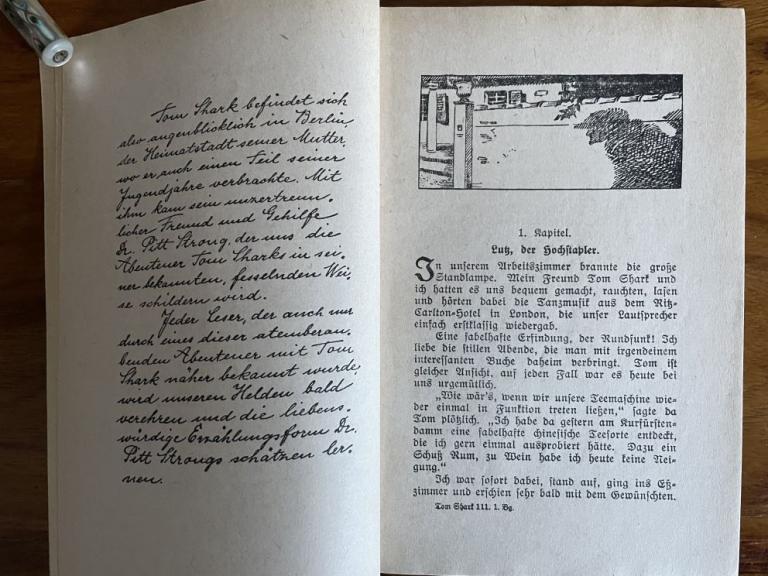 Tom Shark befindet sich
also augenblicklich in Berlin,
der Heimatstadt seiner Mutter,
wo er auch einen Teil seiner
Jugendjahre verbrachte. Mit
ihm kam sein unzertrenn-
licher Freund und Gehilfe
Dr. Pitt Strong, der uns die
Abenteuer Tom Sharks in sei-
ner bekannten, fesselnden Wei-
se schildern wird.
Jeder Leser, der auch nur
durch eines dieser atemberau-
benden Abenteuer mit Tom
Shark näher bekannt wurde,
wird unseren Helden bald
verehren und die liebens-
würdige Erzählungsform Dr.
Pitt Strongs schätzen ler-
nen.
1. Kapitel.
Lutz, der Hochstapler.
In unserem Arbeitszimmer brannte die große
Standlampe. Mein Freund Tom Shark und
ich hatten es uns bequem gemacht, rauchten, lasen
und hörten dabei die Tanzmusik aus dem Ritz-
Carlton-Hotel in London, die unser Lautsprecher
einfach erstklassig wiedergab.
Eine fabelhafte Erfindung, der Rundfunk! Ich
liebe die stillen Abende, die man mit irgendeinem
interessanten Buche daheim verbringt. Tom ist
gleicher Ansicht, auf jeden Fall war es heute bei
uns urgemütlich.
„Wie wär's, wenn wir unsere Teemaschine wie-
der einmal in Funktion treten ließen,“ sagte da
Tom plötzlich. „Ich habe da gestern am Kurfürsten-
damm eine fabelhafte chinesische Teesorte entdeckt,
die ich gern einmal ausprobiert hätte. Dazu ein
Schuß Rum, zu Wein habe ich heute keine Nei-
gung.“
Ich war sofort dabei, stand auf, ging ins Eß-
zimmer und erschien sehr bald mit dem Gewünschten.
Tom Shark 111. 1. Bg.